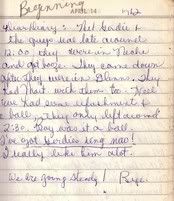 Beginning
APRIL 14
1962
Dear Diary: Net Gordie &
the guys was late around
12:00 they were in
and got booze. They came down
after they were in Blenns. They
had Matt with them too. Neel
we had some refreshment &
a ball. They only left around
2:30. Boy was it a ball.
I've got Gordies ring now!
I really like him alot.
We are going Steady!